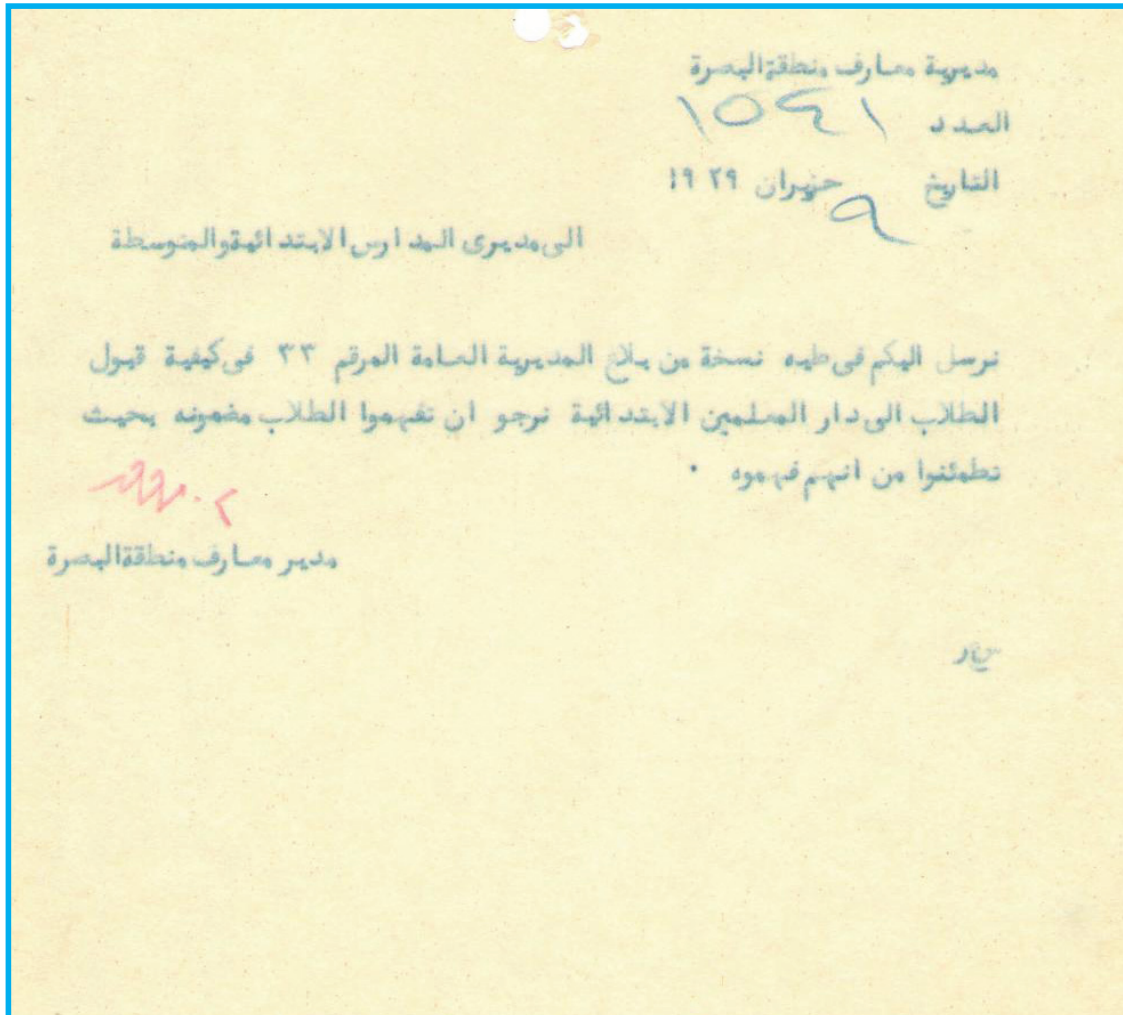 مديرية معارف منطقة البصرة
العدد ١٥٤١
التاريخ ٩ حزيران ١٩٢٩
الى مديرى المدارس الابتدائية والمتوسطة
نرسل اليكم فى طيه نسخة من بلاغ المديرية العامة المرقم ٣٣ فى كيفية قبول
الطلاب الى دار المعلمين الابتدائية نرجو ان تفهموا الطلاب مضمونه بحيث
تطمئنوا من انهم فهموه ٠
مدير معارف منطقة البصرة